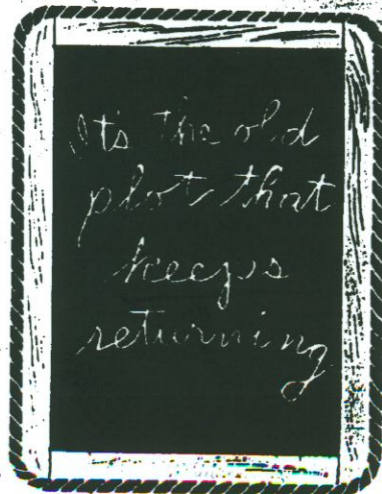 It's the old
plot that
keeps
returning